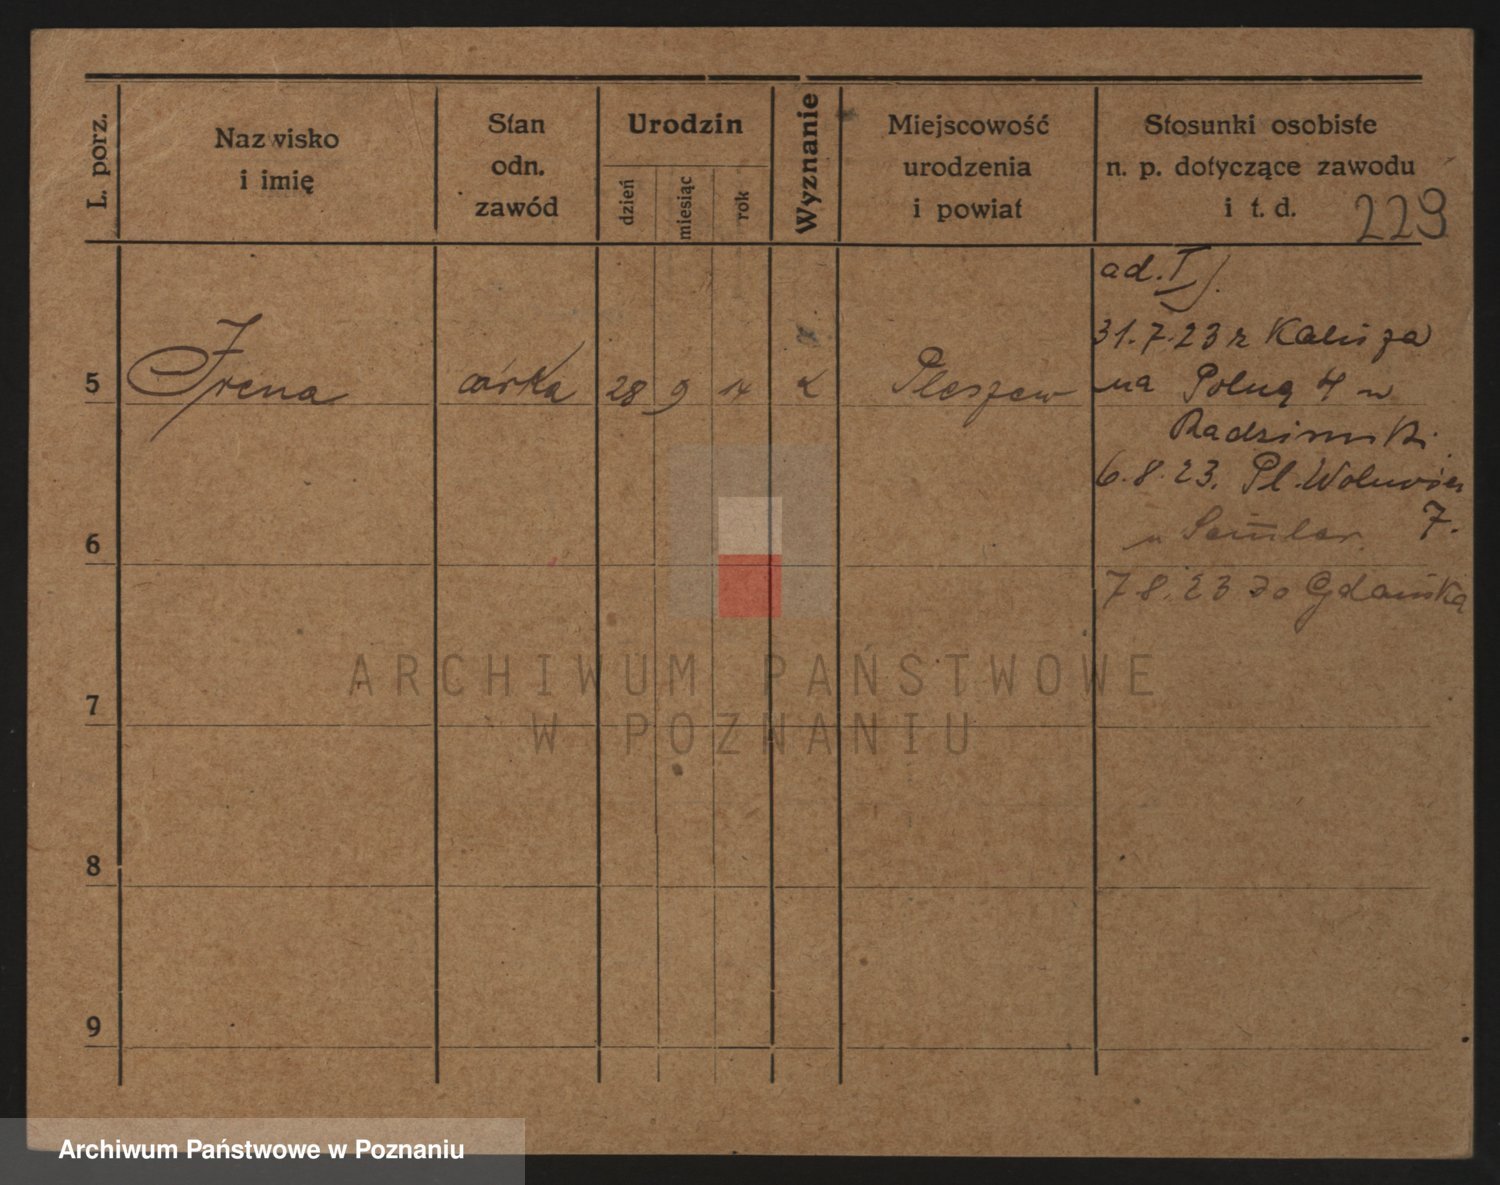 L. porz.
Nazwisko
i imię
Stan
odn.
zawód
Urodzin
dzień
miesiąc
rok
Wyznanie
Miejscowość
urodzenia
i powiat
Stosunki osobiste
n. p. dotyczące zawodu
i t. d.
229
ad. I).
31.7.23 z Kalisza
5 Irena córka 28 9 14 k Pleszew
na Polną 4 u
6.8.23. Pl. Wolności
7.
6
7.8.23 do Gdańska
7
8
9
ARCHIWUM PAŃSTWOWE
W POZNANIU
Archiwum Państwowe w Poznaniu